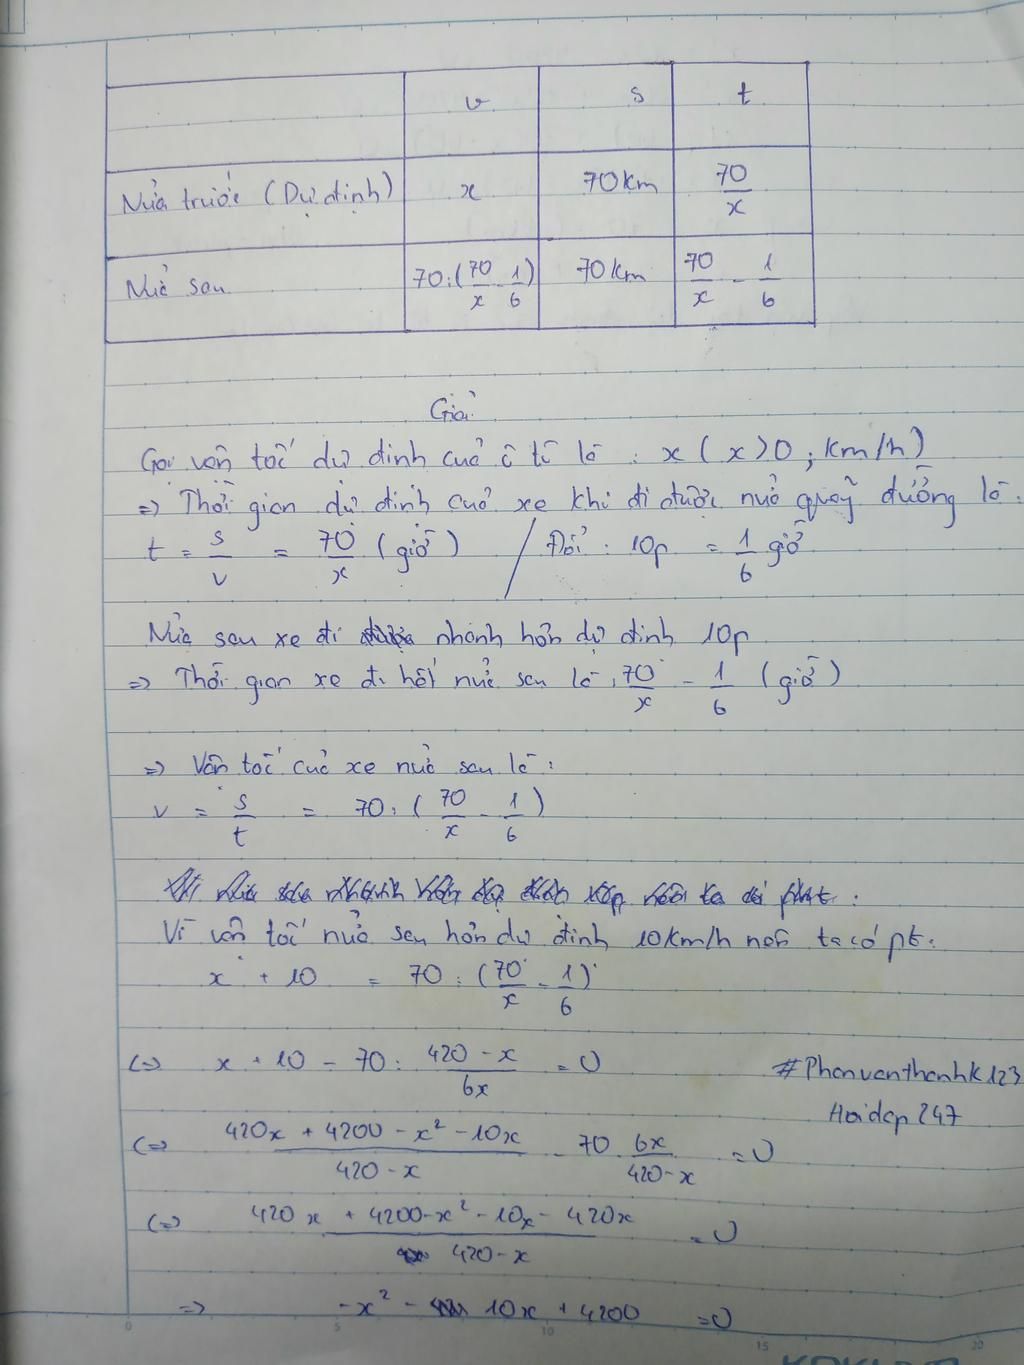 v s t
Nửa trước (Dự định) x 70km 70/x
Nửa sau 70:(70/x - 1/6) 70km 70/x - 1/6
Giải
Gọi vận tốc dự định của ô tô là : x ( x>0 ; km/h)
=> Thời gian dự định của xe khi đi được nửa quãng đường là :
t = s/v = 70/x (giờ) / Đổi : 10p = 1/6 giờ
Nửa sau xe đi nhanh hơn dự định 10p
=> Thời gian xe đi hết nửa sau là : 70/x - 1/6 (giờ)
=> Vận tốc của xe nửa sau là :
v = s/t = 70 : ( 70/x - 1/6 )
Vì vận tốc nửa sau hơn dự định 10km/h nên ta có pt :
x + 10 = 70 : (70/x - 1/6)
(=) x + 10 - 70 : (420 - x)/6x = 0
#Phanvanthanhk123
Hoidap247
(=) (420x + 4200 - x² - 10x)/(420 - x) - 70 . 6x/(420 - x) = 0
(=) (420x + 4200 - x² - 10x - 420x)/(420 - x) = 0
=> -x² - 10x + 4200 = 0
0 5 10 15 20